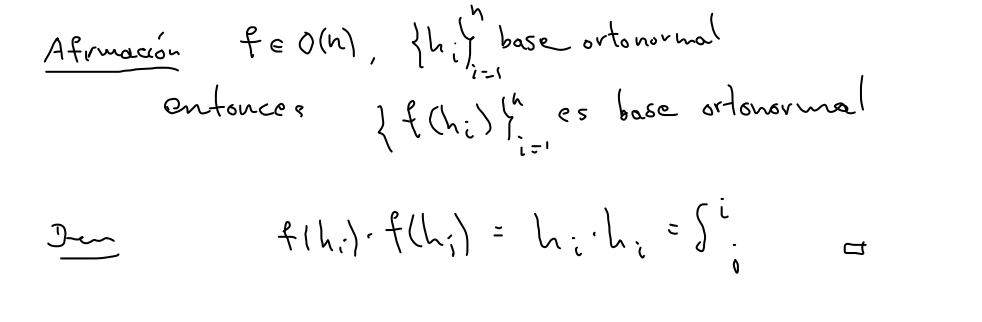 Afirmación f ∈ O(n), {h_i}_{i=1}^n base ortonormal
entonces {f(h_i)}_{i=1}^n es base ortonormal
Dem f(h_i) · f(h_j) = h_i · h_j = δ^i_j □